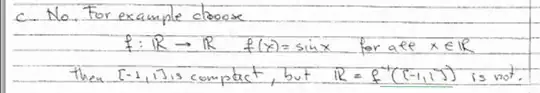 c. No. For example choose
f: ℝ → ℝ f(x) = sin x for all x ∈ ℝ
Then [-1, 1] is compact, but ℝ = f⁻¹([-1, 1]) is not.